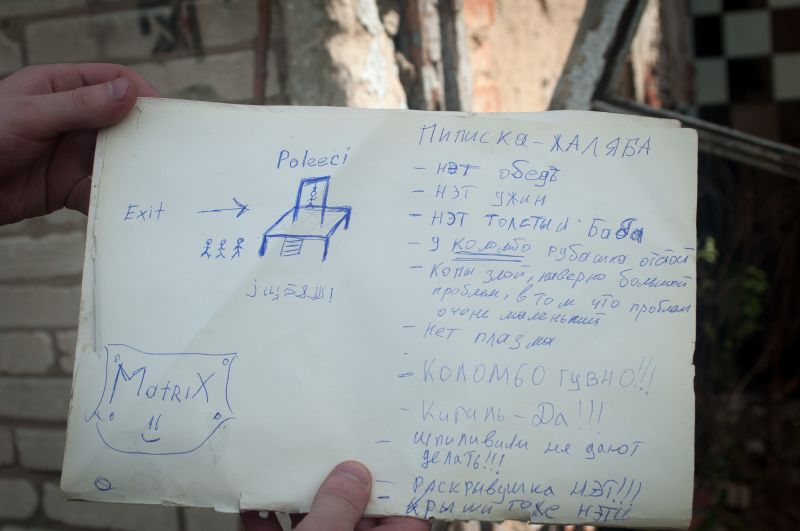 Poleeci
Exit
MatriX
Пиписка-жаляба
- нэт обедъ
- нэт ужин
- нэт толстый баба
- У коломбо рубашка отстой
- Копы злой, наверно большой
проблем, в том что проблем
очене маленький
- Нет плазма
- КОЛОМБО ГУВНО!!!
- Кираль-Да!!!
- шпиливили не дают
делать!!!
- РАСКРЫВУШКА НЭТ!!!
- КРЫШИ ТОЖЕ НЭТ!!